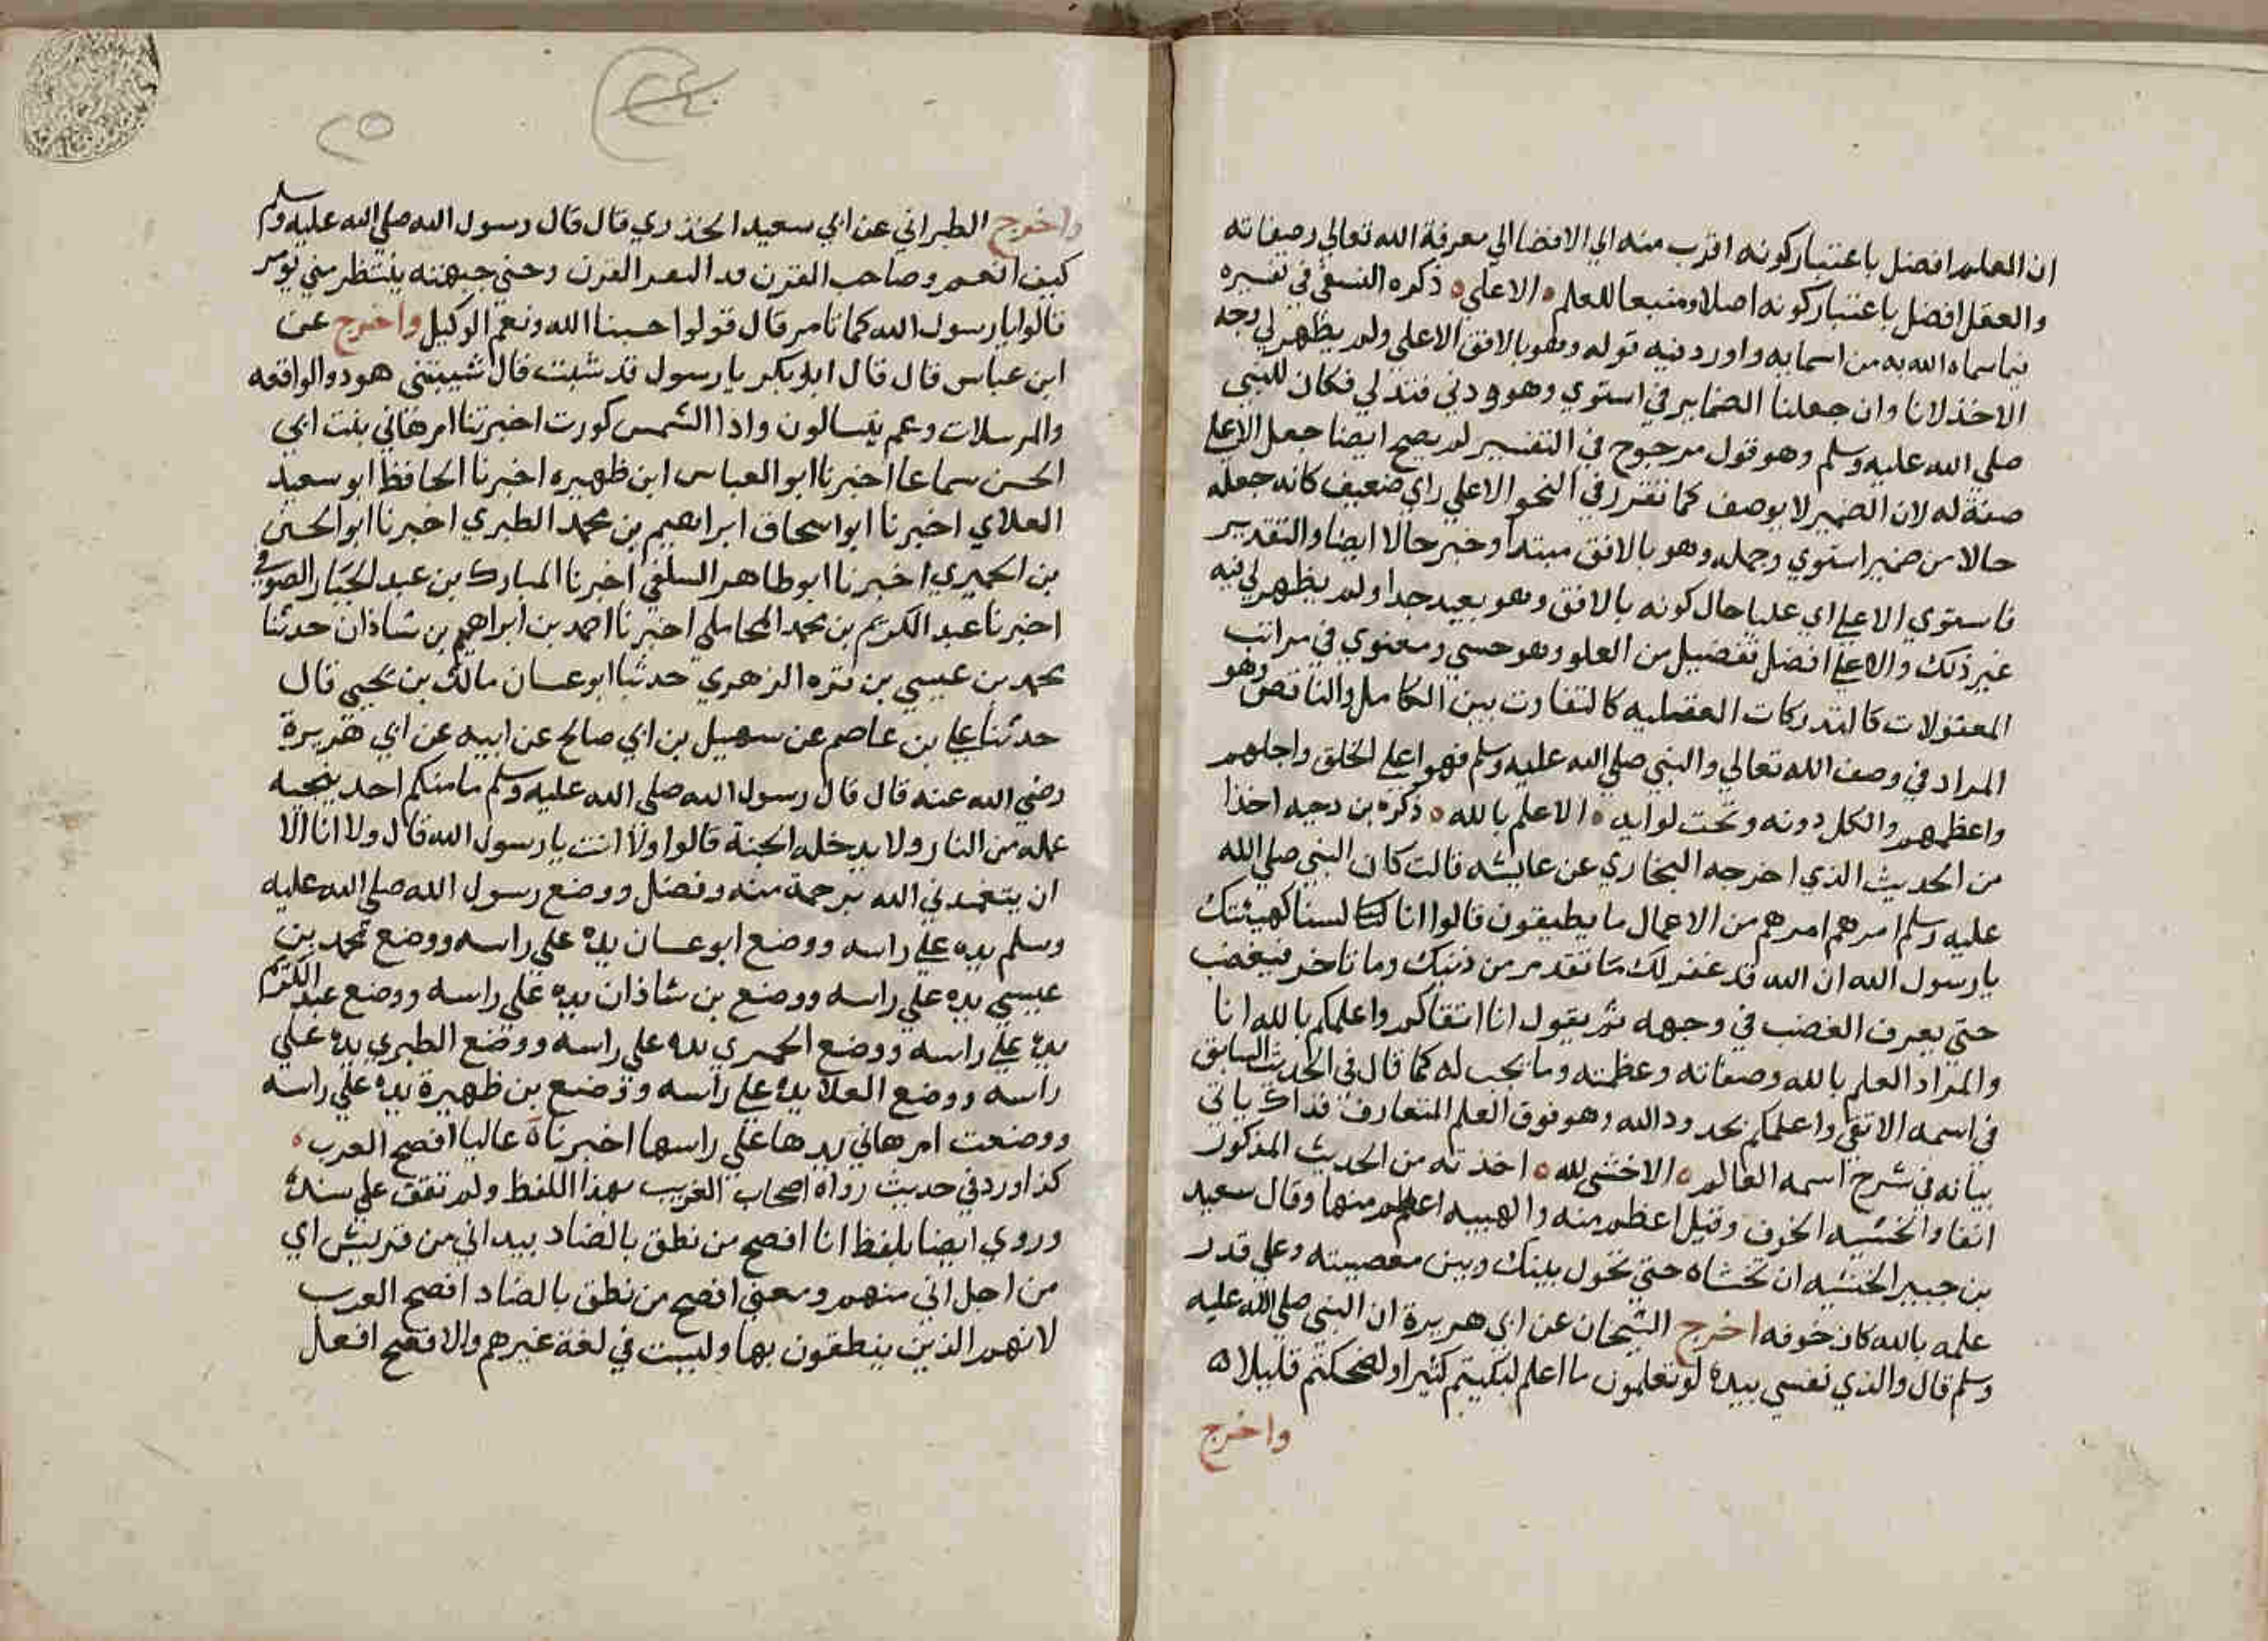 ان العلم افضل باعتبار كونه اقرب منه الي الافضا الي معرفة الله تعالي وصفاته
والعقل افضل باعتبار كونه اصلا ومنبعا للعلم ه الاعلي ه ذكره النسفي في تفسيره
فيما سماه الله به من اسمايه واورد فيه قوله وهو بالافق الاعلي ولم يظهر لي وجه
الاخذ لانا وان جعلنا الضماير في استوي وهو ودني فتدلي فكان للنبي
صلي الله عليه وسلم وهو قول مرجوح في التفسير لم يصح ايضا جعل الاعلي
صفة له لان الضمير لا يوصف كما تقرر في النحو الا علي راي ضعيف كانه جعله
حالا من ضمير استوي وجمله وهو بالافق مبتدا وخبر حالا ايضا والتقدير
فاستوي الاعلي اي عليا حال كونه بالافق وهو بعيد جدا ولم يظهر لي فيه
غير ذلك والاعلي افضل تفضيل من العلو وهو حسي ومعنوي في مراتب
المعقولات كالتدركات العقليه كالتفاوت بين الكامل والناقص وهو
المراد في وصف الله تعالي والنبي صلي الله عليه وسلم فهو اعلي الخلق واجلهم
واعظمهم والكل دونه وتحت لوايه ه الاعلم بالله ه ذكره بن دحيه اخذا
من الحديث الذي اخرجه البخاري عن عايشه قالت كان النبي صلي الله
عليه وسلم امرهم امرهم من الاعمال ما يطيقون قالوا انا لسنا كهيئتك
يا رسول الله ان الله قد غفر لك ما تقدم من ذنبك وما تاخر فيغضب
حتي يعرف الغضب في وجهه ثم يقول انا اتقاكم واعلمكم بالله انا
والمراد العلم بالله وصفاته وعظمته وما يجب له كما قال في الحديث السابق
في اسمه الاتقي واعلمكم بحدود الله وهو فوق العلم المتعارف فذاك ياتي
بيانه في شرح اسمه العالم ه الاخشي لله ه اخذته من الحديث المذكور
انفا والخشيه الخوف وقيل اعظم منه والهيبه اعظم منها وقال سعيد
بن جبير الخشيه ان تخشاه حتي تحول بينك وبين معصيته وعلي قدر
علمه بالله كان خوفه اخرج الشيخان عن ابي هريرة ان النبي صلي الله عليه
وسلم قال والذي نفسي بيده لو تعلمون ما اعلم لبكيتم كثيرا ولضحكتم قليلا
واخرج
٢٥
واخرج الطبراني عن ابي سعيد الخذري قال قال رسول الله صلي الله عليه وسلم
كيف انعم وصاحب القرن قد التقم القرن وحني جبهته ينتظر متي يومر
قالوا يا رسول الله كما تامر قال قولوا حسبنا الله ونعم الوكيل واخرج عن
ابن عباس قال قال ابو بكر يا رسول قد شبت قال شيبتني هود والواقعه
والمرسلات وعم يتسالون واذا الشمس كورت اخبرتنا ام هاني بنت ابي
الحسن سماعا اخبرنا ابو العباس ابن ظهيره اخبرنا الحافظ ابو سعيد
العلاي اخبرنا ابو اسحاق ابراهيم بن محمد الطبري اخبرنا ابو الحسن
بن الحميري اخبرنا ابو طاهر السلفي اخبرنا المبارك بن عبد الجبار الصوفي
اخبرنا عبد الكريم بن محمد المحاملي اخبرنا احمد بن ابراهيم بن شاذان حدثنا
محمد بن عيسي بن الزهري حدثنا ابو عسان مالك بن يحيي قال
حدثنا علي بن عاصم عن سهيل بن ابي صالح عن ابيه عن ابي هريرة
رضي الله عنه قال قال رسول الله صلي الله عليه وسلم ما منكم احد ينجيه
عمله من النار ولا يدخله الجنة قالوا ولا انت يا رسول الله قال ولا انا الا
ان يتغمدني الله برحمة منه وفضل ووضع رسول الله صلي الله عليه
وسلم يده علي راسه ووضع ابو عسان يده علي راسه ووضع محمد بن
عيسي يده علي راسه ووضع بن شاذان يده علي راسه ووضع عبد الكريم
يده علي راسه ووضع الحميري يده علي راسه ووضع الطبري يده علي
راسه ووضع العلا يده علي راسه ووضع بن ظهيرة يده علي راسه
ووضعت ام هاني يدها علي راسها اخبرناه عاليا افصح العرب ه
كذا ورد في حديث رواه اصحاب الغريب بهذا اللفظ ولم نقف علي سنده
وروي ايضا بلفظ انا افصح من نطق بالضاد بيد اني من قريش اي
من اجل اني منهم ومعني افصح من نطق بالضاد افصح العرب
لانهم الذين ينطقون بها وليست في لغة غيرهم والافصح افعل